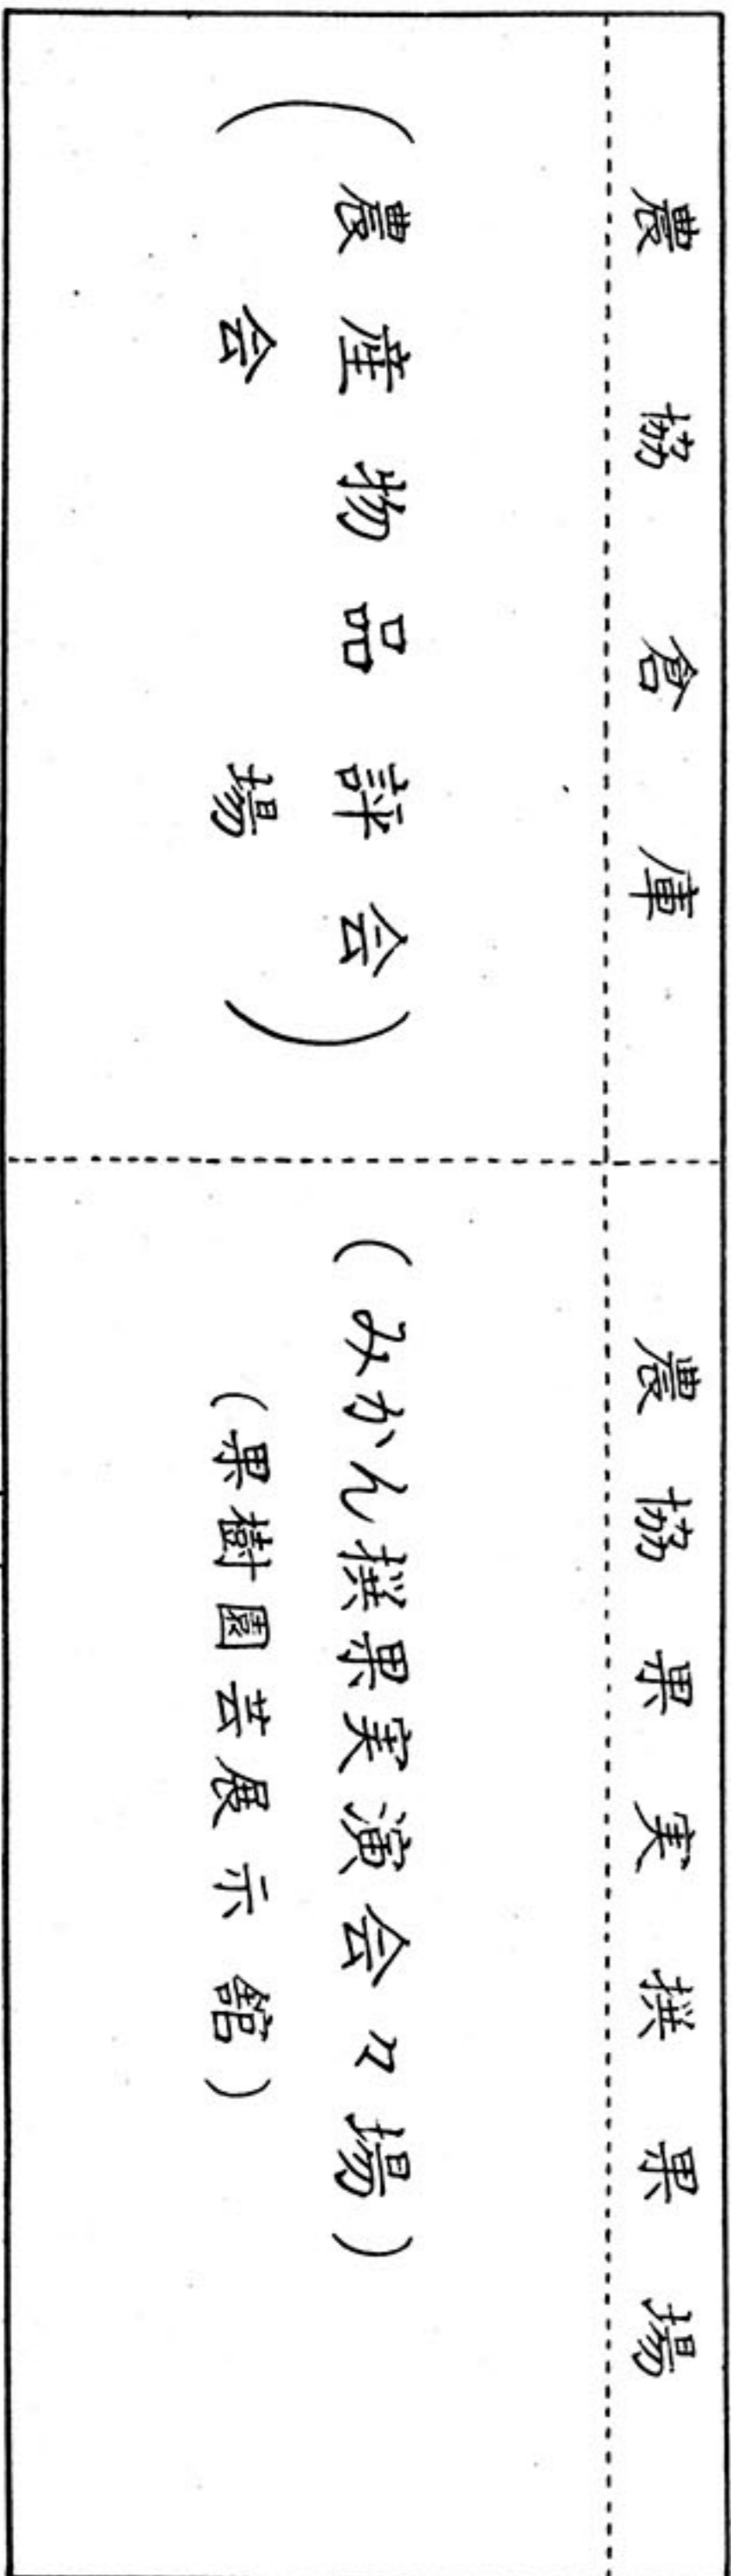 農協倉庫
(農産物品評会
会場)
農協果実撰果場
(みかん撰果実演会々場)
(果樹園芸展示館)